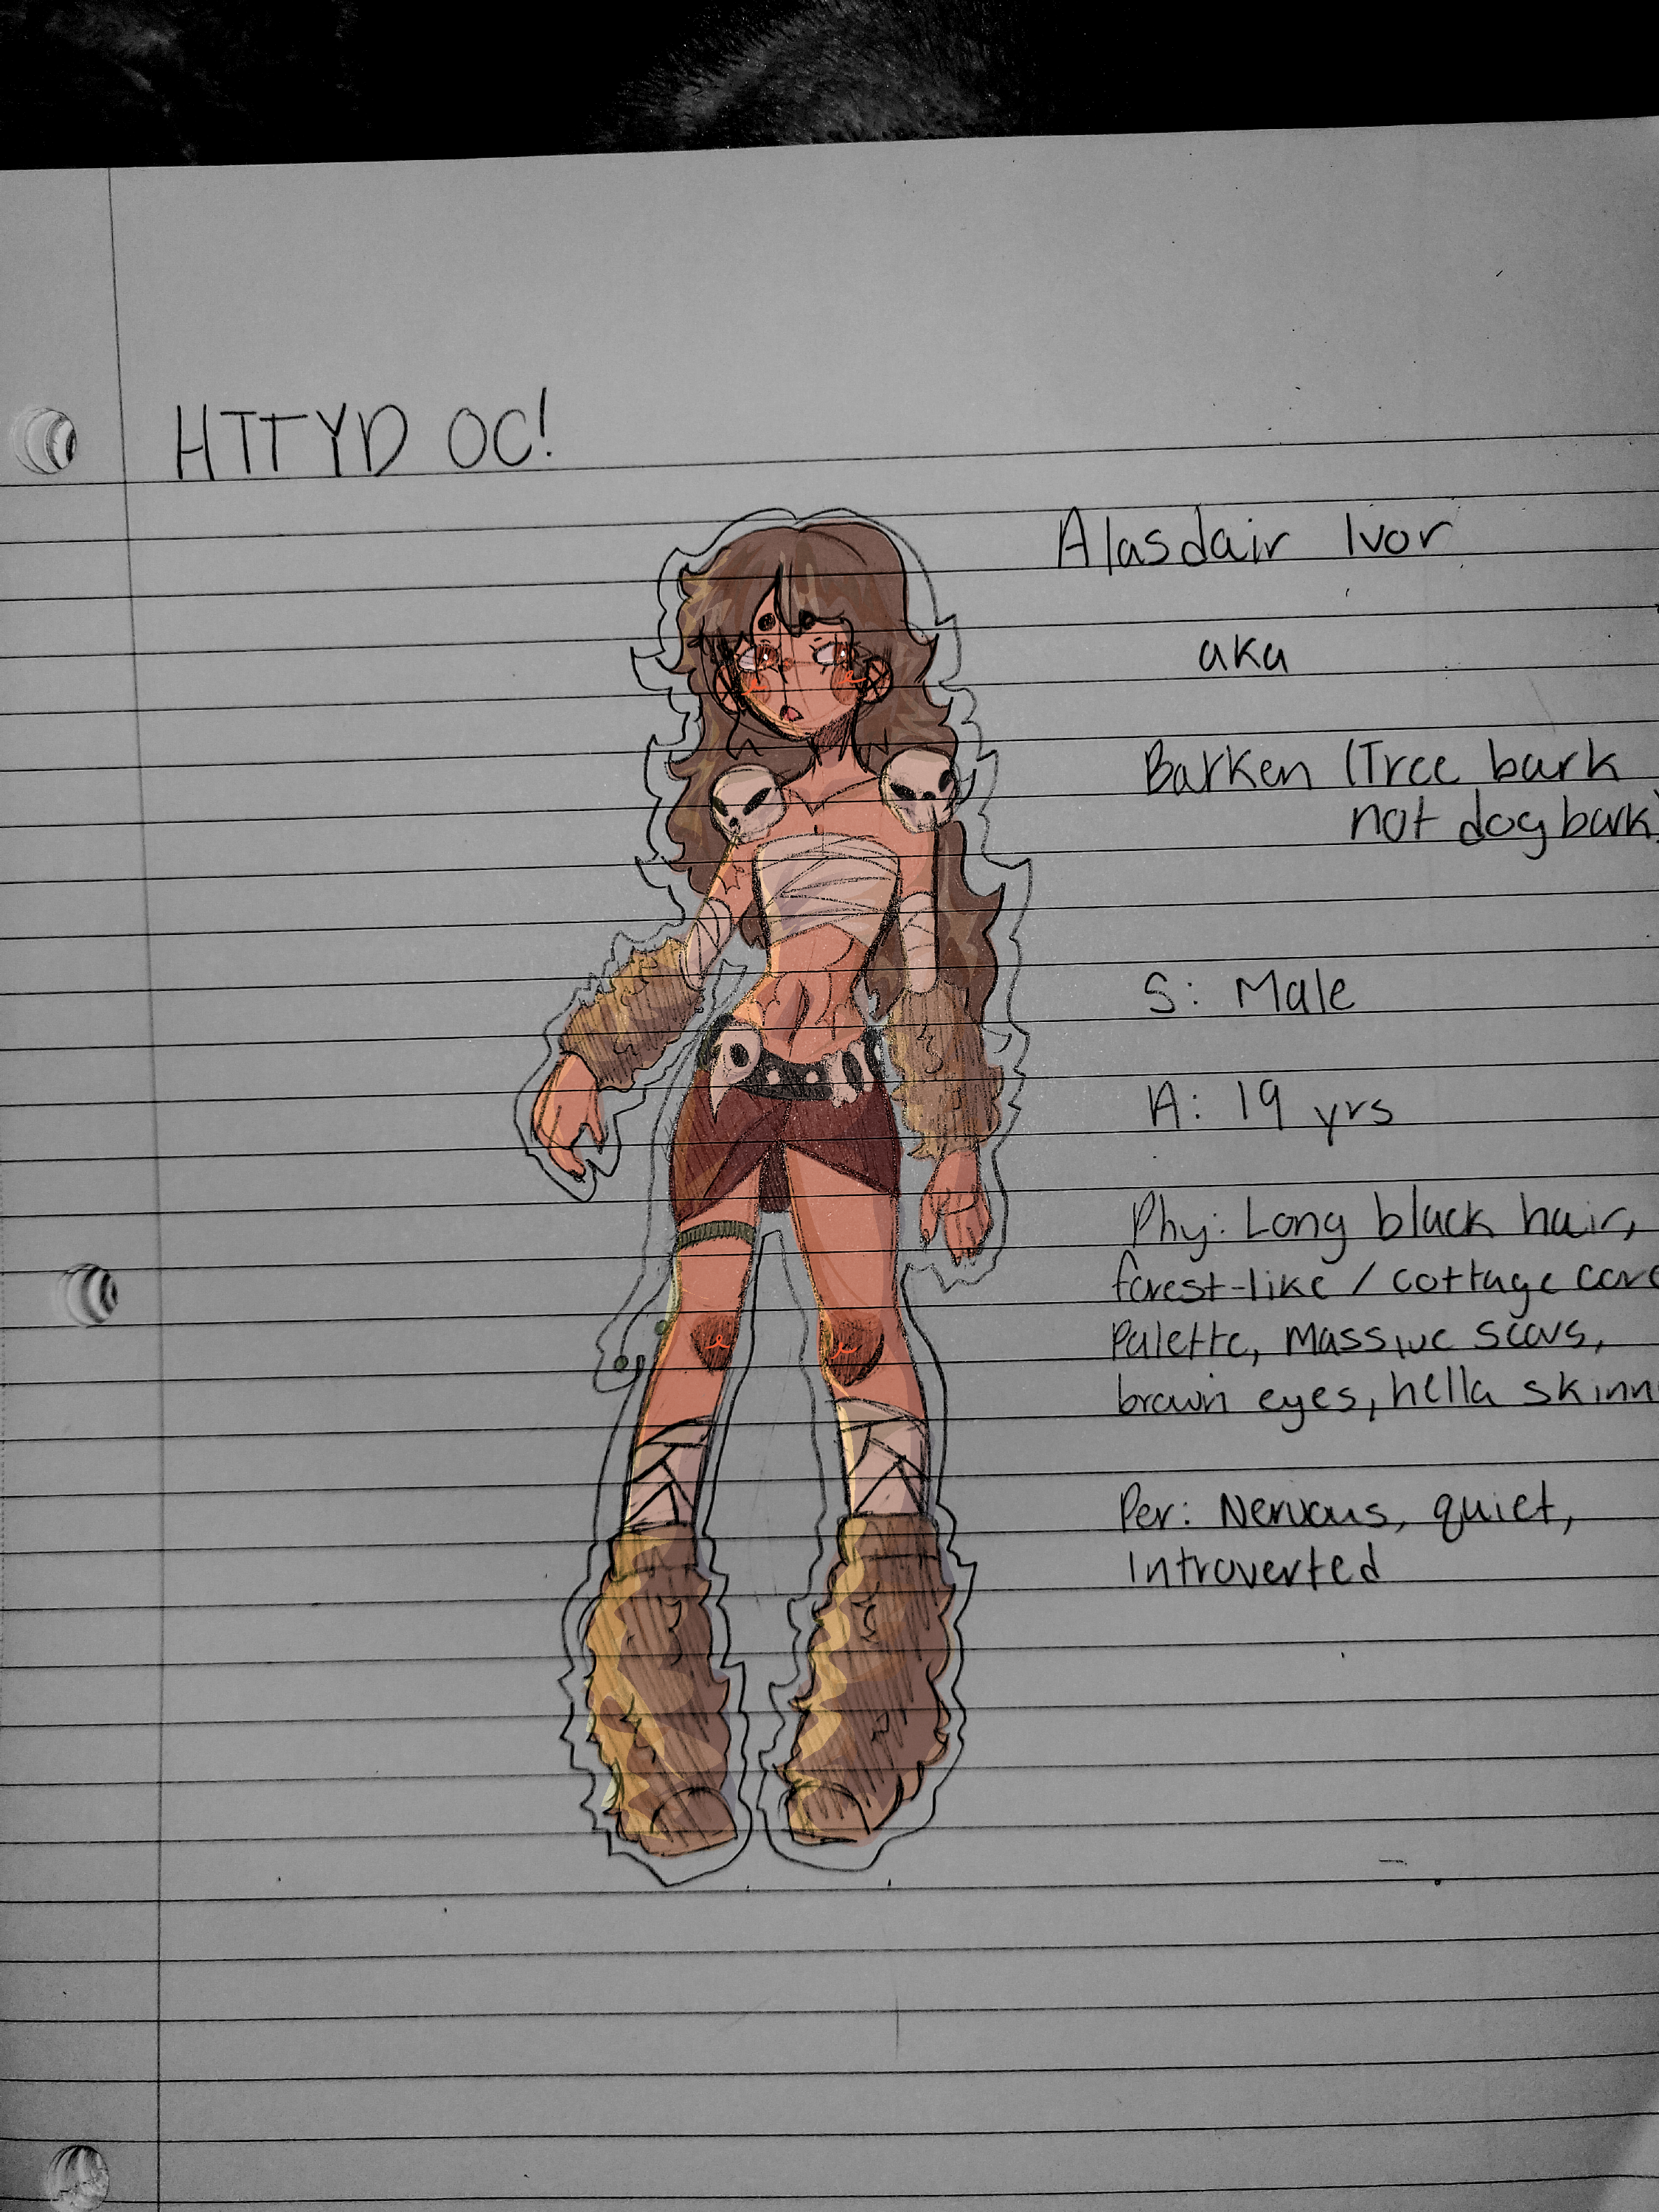 HTTYD OC!
Alasdair Ivor
aka
Barken (Tree bark
not dog bark)
S: Male
A: 19 yrs
Phy: Long black hair,
forest-like / cottage core
Palette, Massive scars,
brown eyes, hella skinn
Per: Nervous, quiet,
Introverted